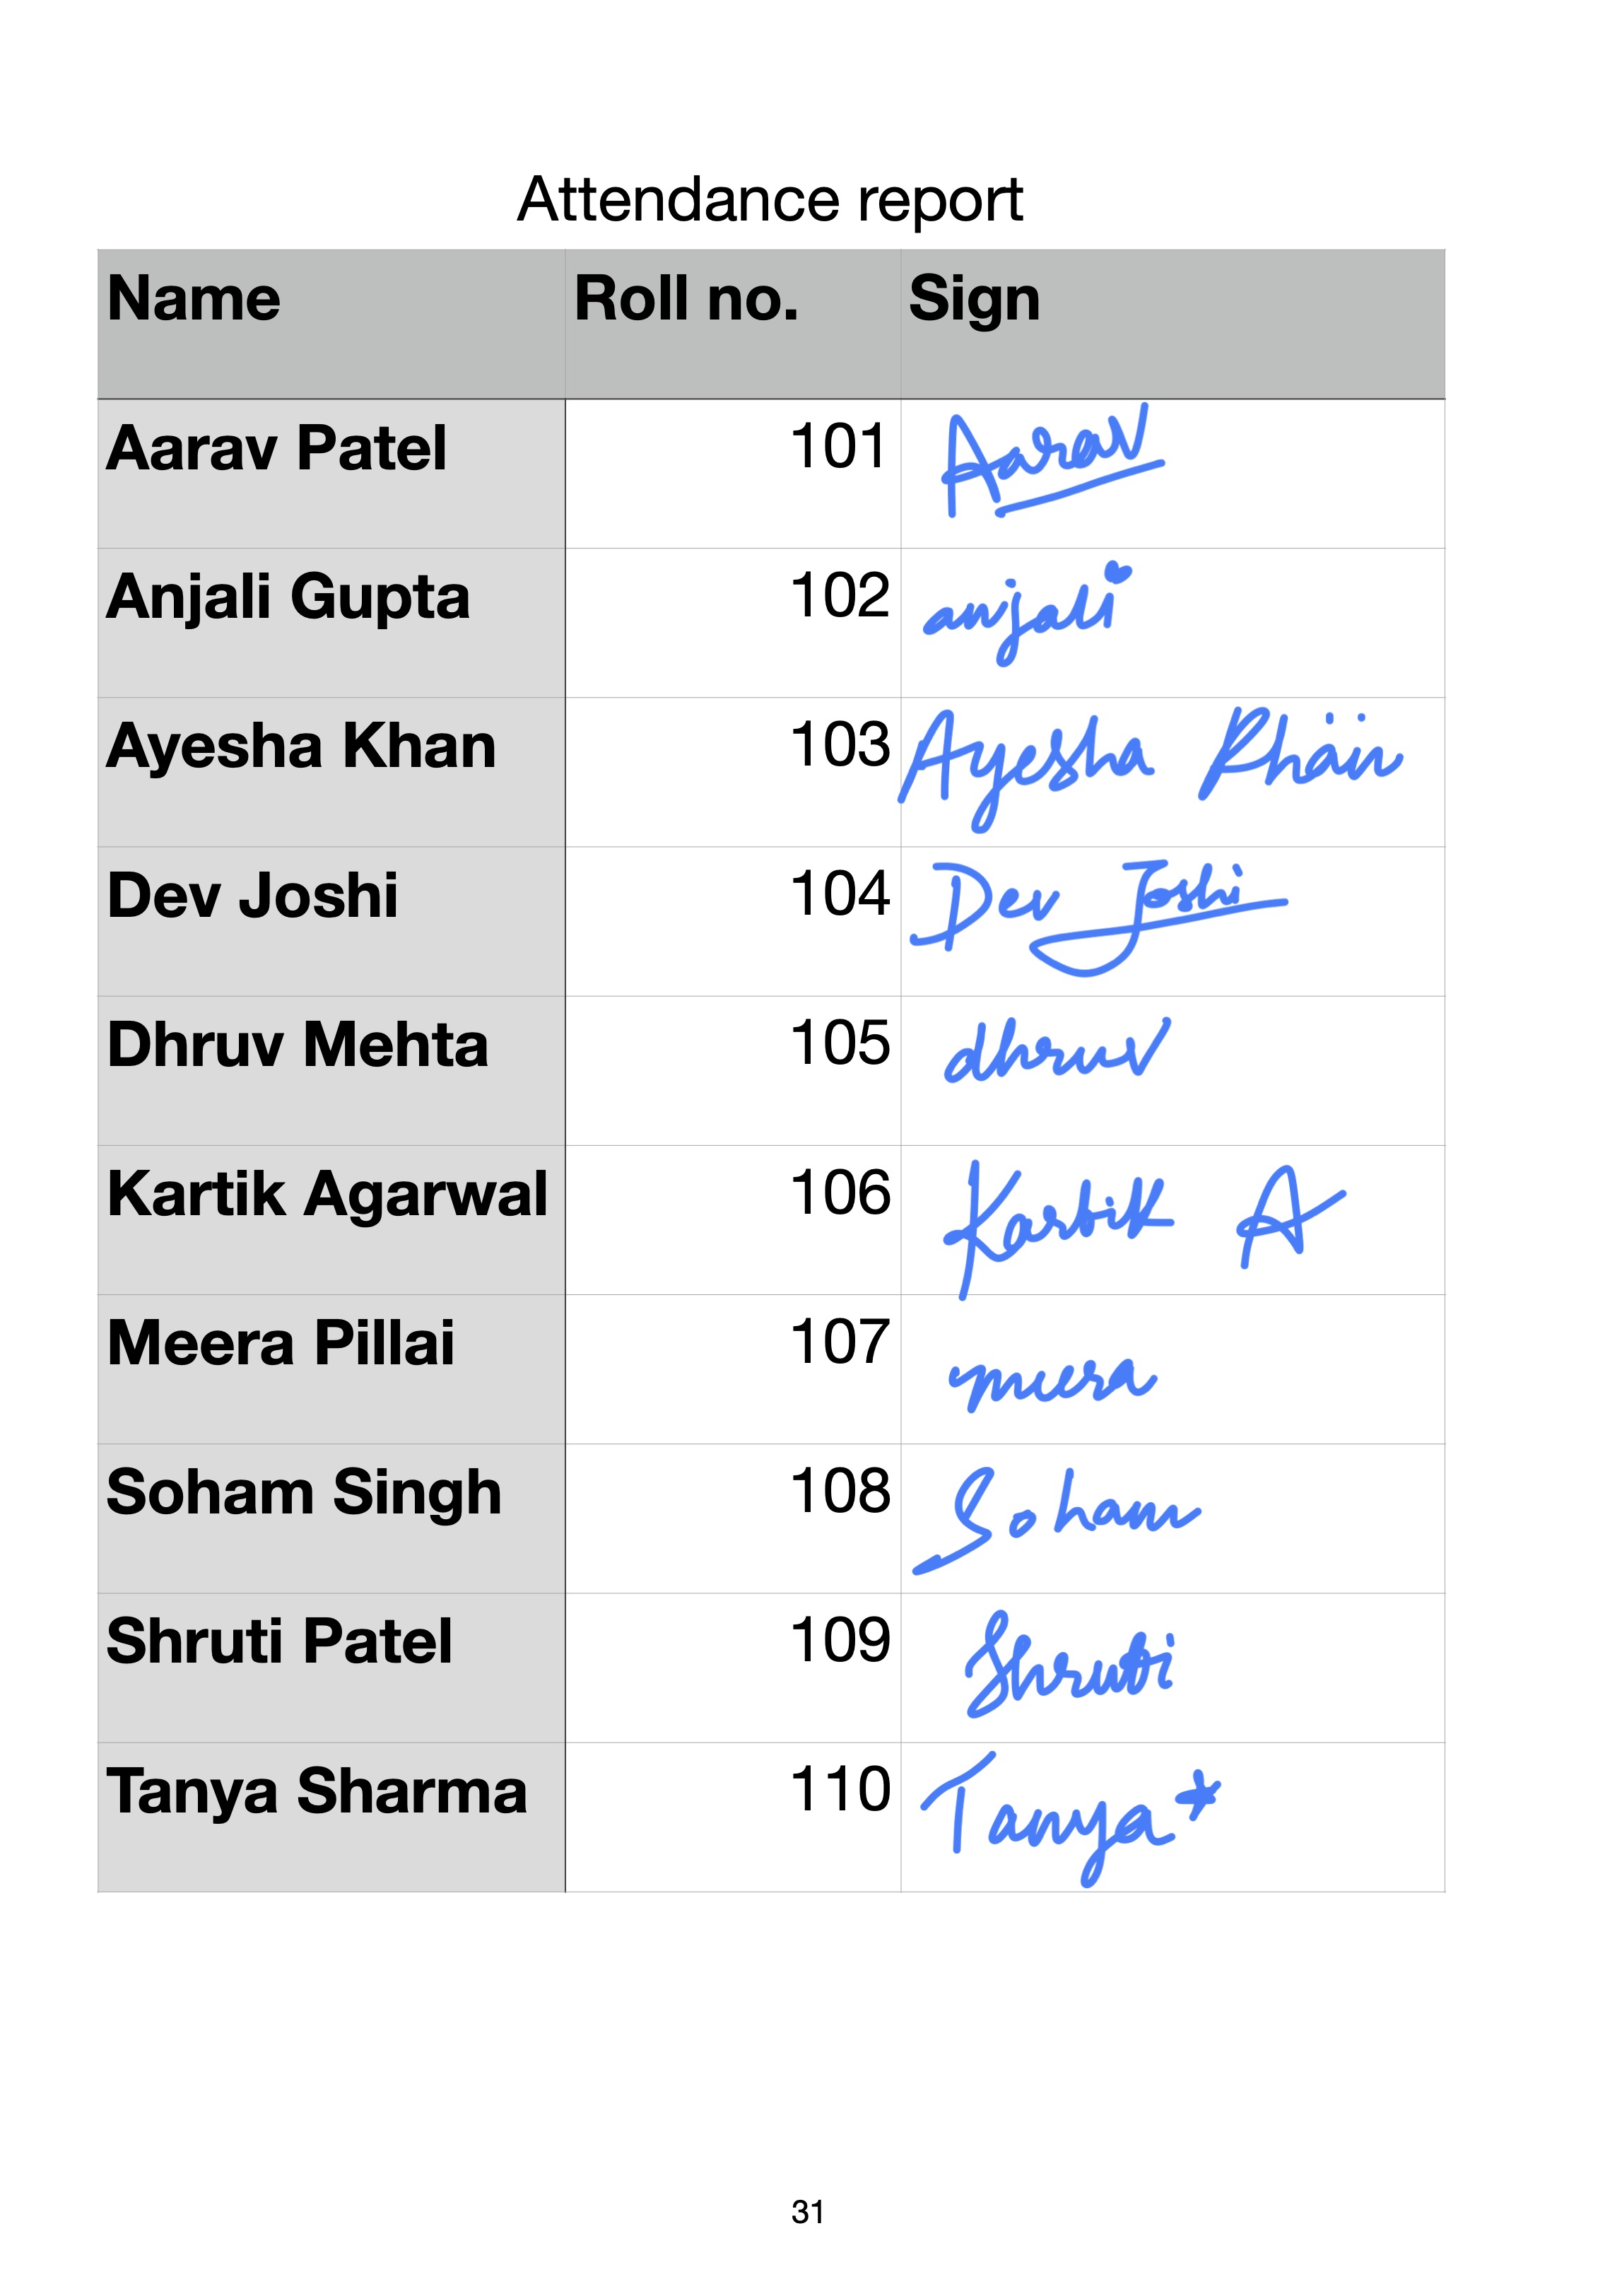 Attendance report
Name Roll no. Sign
Aarav Patel 101 Aarav
Anjali Gupta 102 anjali
Ayesha Khan 103 Ayesha Khan
Dev Joshi 104 Dev Joshi
Dhruv Mehta 105 dhruv
Kartik Agarwal 106 Kartik A
Meera Pillai 107 meera
Soham Singh 108 Soham
Shruti Patel 109 Shruti
Tanya Sharma 110 Tanya*
31